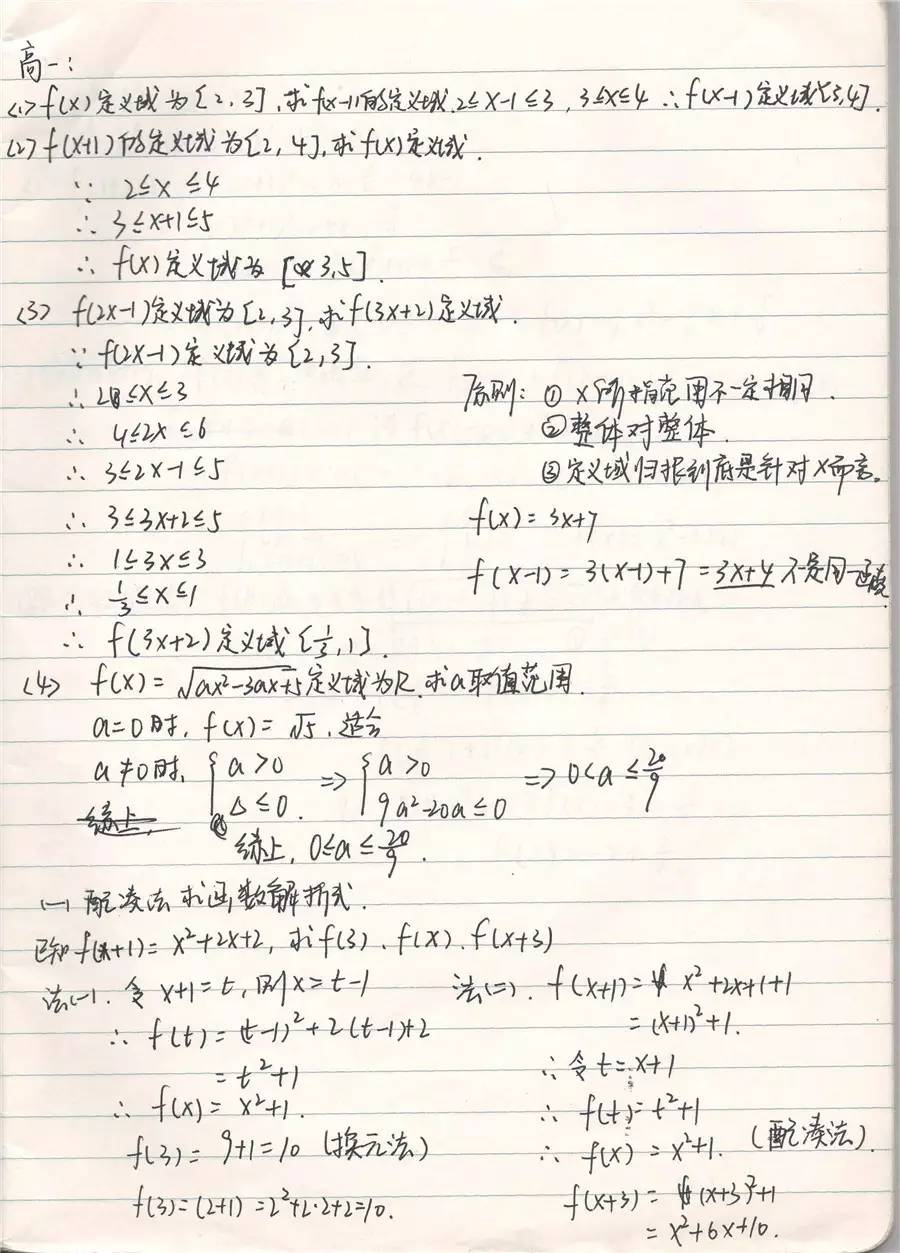 高一:
<1> f(x)定义域为[2,3],求f(x-1)的定义域.2≤x-1≤3, 3≤x≤4 ∴f(x-1)定义域[3,4].
<2> f(x+1)的定义域为[2,4],求f(x)定义域.
∵ 2≤x≤4
∴ 3≤x+1≤5
∴ f(x)定义域为 [3,5]
<3> f(2x-1)定义域为[2,3],求f(3x+2)定义域.
∵ f(2x-1)定义域为[2,3].
∴ 2≤x≤3
∴ 4≤2x≤6
∴ 3≤2x-1≤5
∴ 3≤3x+2≤5
∴ 1≤3x≤3
∴ 1/3≤x≤1
∴ f(3x+2)定义域[1/3,1]
原则: ① x所指范围不一定相同.
②整体对整体.
③定义域归根到底是针对x而言.
f(x)=3x+7
f(x-1)=3(x-1)+7=3x+4 不是同一函数
<4> f(x)=√(ax²-3ax+5)定义域为R.求a取值范围.
a=0时, f(x)=√5.适合
a≠0时, { a>0 ⇒ { a>0 ⇒ 0<a≤20/9
Δ≤0. 9a²-20a≤0
综上, 0≤a≤20/9.
(一)配凑法求函数解析式.
已知f(x+1)=x²+2x+2,求f(3).f(x).f(x+3)
法(一).令x+1=t,则x=t-1
∴ f(t)=(t-1)²+2(t-1)+2
=t²+1
∴ f(x)=x²+1.
f(3)=9+1=10 (换元法)
f(3)=(2+1)=2²+2·2+2=10.
法(二). f(x+1)=x²+2x+1+1
=(x+1)²+1.
∴令t=x+1
∴ f(t)=t²+1
∴ f(x)=x²+1. (配凑法).
f(x+3)=(x+3)²+1
=x²+6x+10.